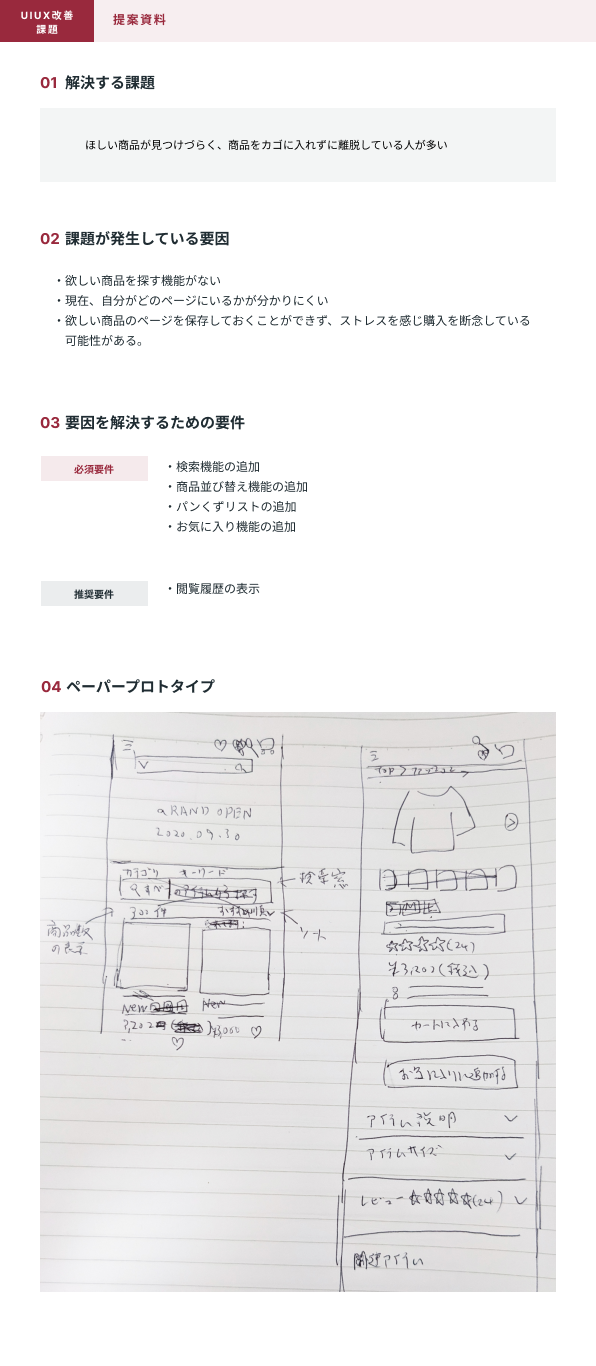 UIUX改善
課題
提案資料
01 解決する課題
ほしい商品が見つけづらく、商品をカゴに入れずに離脱している人が多い
02 課題が発生している要因
・欲しい商品を探す機能がない
・現在、自分がどのページにいるかが分かりにくい
・欲しい商品のページを保存しておくことができず、ストレスを感じ購入を断念している
可能性がある。
03 要因を解決するための要件
必須要件
・検索機能の追加
・商品並び替え機能の追加
・パンくずリストの追加
・お気に入り機能の追加
推奨要件
・閲覧履歴の表示
04 ペーパープロトタイプ
GRAND OPEN
2020.09.30
カテゴリ キーワード
検索窓
300件 おすすめ順
ソート
商品数
の表示
New
New
¥3,000
TOP >
(24)
¥3,202(税込)
カートに入れる
お気に入りに追加する
アイテム説明
アイテムサイズ
レビュー ☆☆☆☆☆(24)
関連アイテム